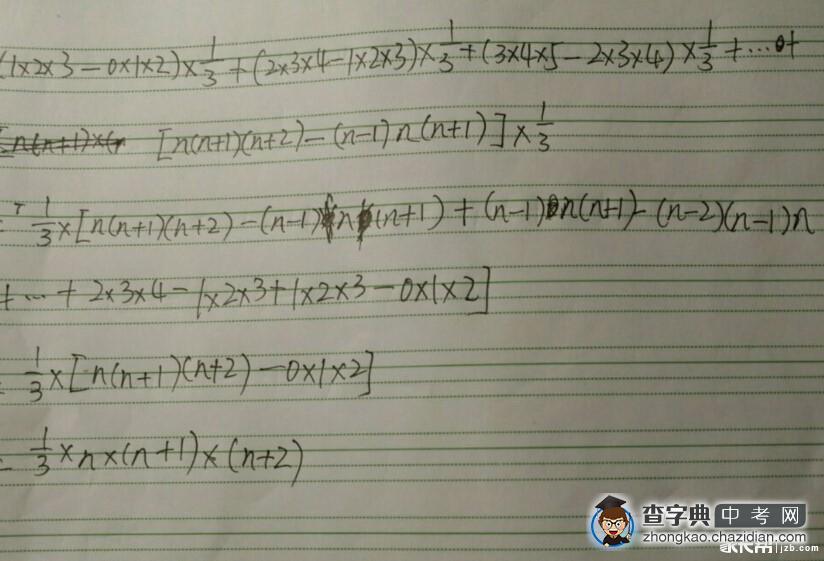 (1×2×3-0×1×2)×1/3+(2×3×4-1×2×3)×1/3+(3×4×5-2×3×4)×1/3+…+
[n(n+1)(n+2)-(n-1)n(n+1)]×1/3
= 1/3×[n(n+1)(n+2)-(n-1)n(n+1)+(n-1)n(n+1)-(n-2)(n-1)n
+…+2×3×4-1×2×3+1×2×3-0×1×2]
= 1/3×[n(n+1)(n+2)-0×1×2]
= 1/3×n×(n+1)×(n+2)
查字典 中考网
zhongkao.chazidian.com
jzb.com